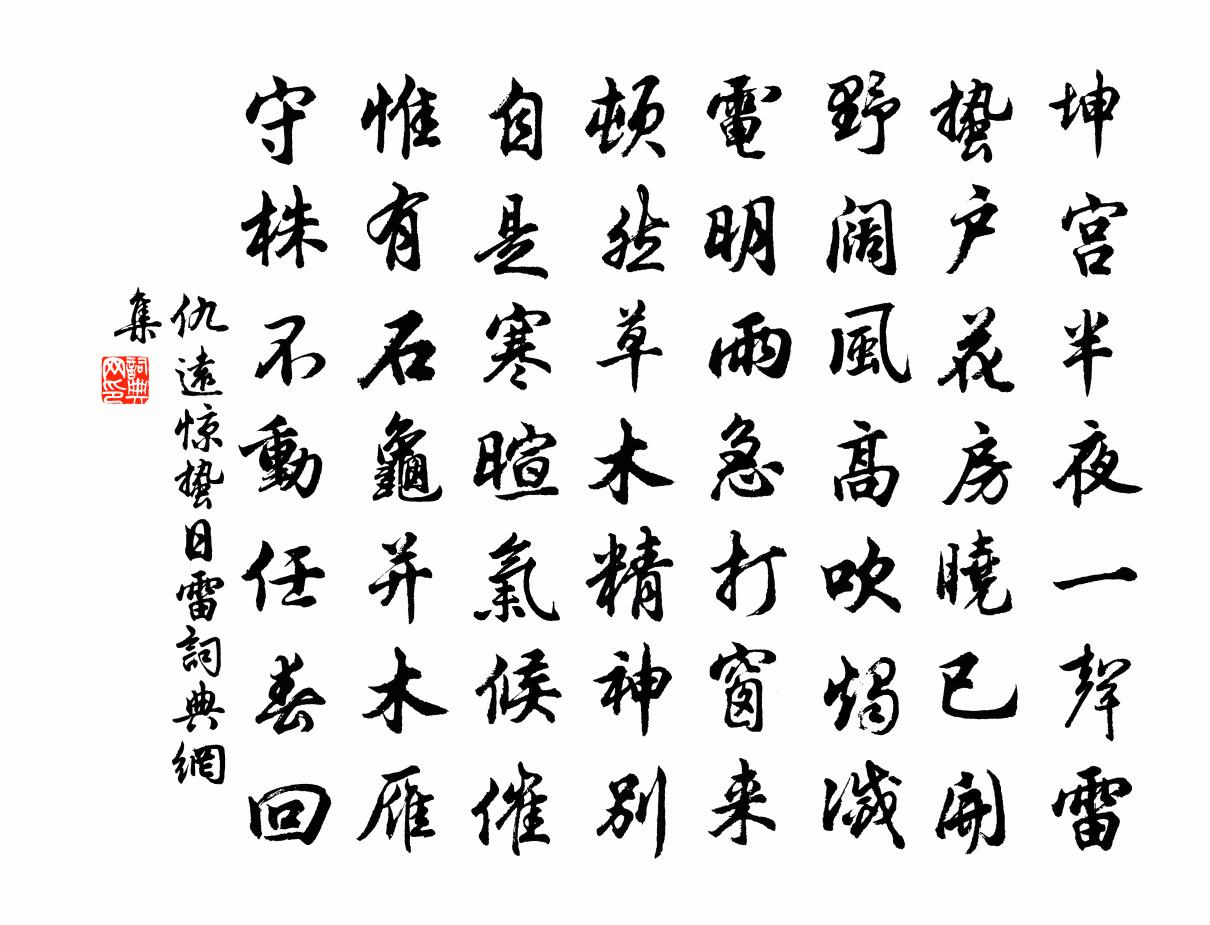 坤宫半夜一聲雷
蛰户花房曉已開
野阔風高吹燭滅
電明雨急打窗来
頓然草木精神别
自是寒暄氣候催
惟有石龜并木雁
守株不動任春回
仇遠惊蛰日雷詞典網
集
詞典网印